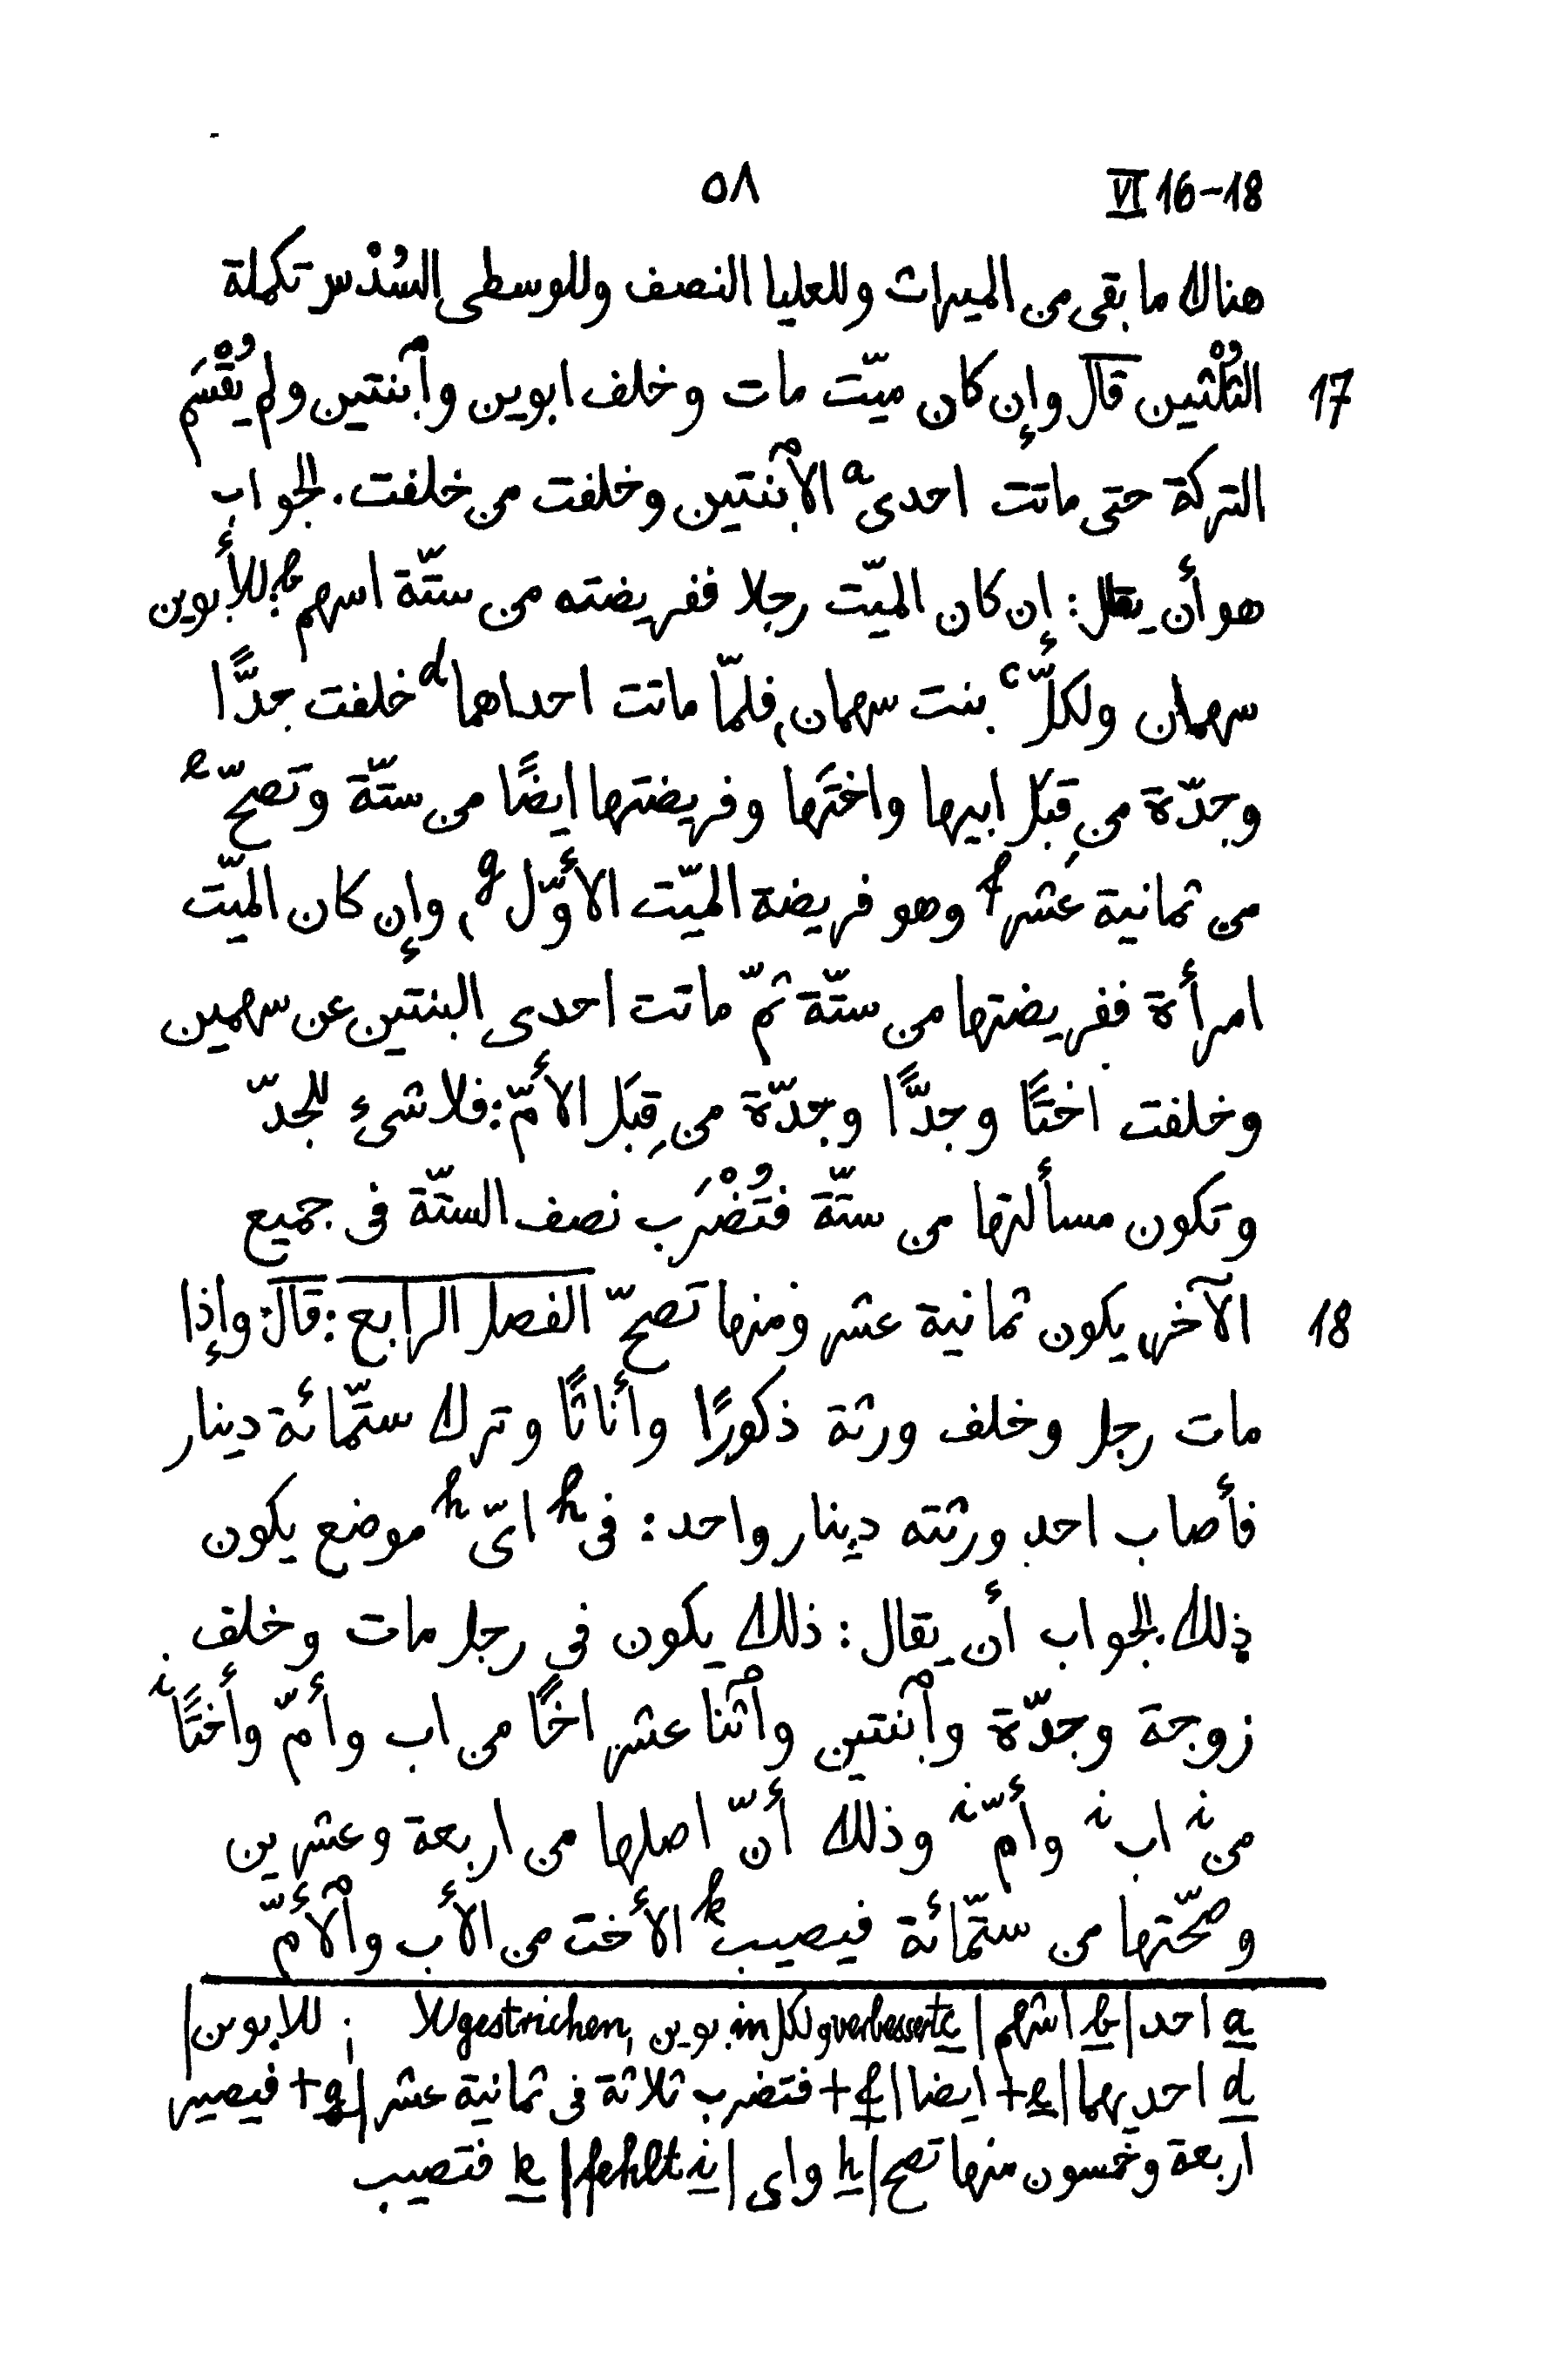 VI 16-18 ٥٨
هناك ما بقى من الميراث وللعليا النصف وللوسطى السُدْس تكملة
17 الثُلْثين قال وإن كان ميّت مات وخلف ابوين وٱبنتين ولم يُقْسَم
التركة حتى ماتت احدى a الٱبنتين وخلفت من خلفت. الجواب
هو أن يقال: إن كان الميّت رجلا ففريضته من ستّة اسهم b: للأبوين
سهمان ولكلّ c بنت سهمان، فلمّا ماتت احداهما d خلفت جدًّا
وجدّة من قِبَل ابيها واختَها وفريضتها ايضًا من ستّة وتصحّ e
من ثمانية عَشر f وهو فريضة الميّت الأوّل g، وإن كان الميّت
امرأة ففريضتها من ستّة ثمّ ماتت احدى البنتين عن سهمين
وخلفت اختًا وجدًّا وجدّة من قِبَل الأمّ: فلا شىء للجدّ
وتكون مسألتها من ستّة فتُضْرَب نصف الستّة فى جميع
18 الآخر، يكون ثمانية عشر ومنها تصحّ الفصل الرابع: قال: وإذا
مات رجل وخلف ورثة ذكورًا وأناثًا وترك ستّمائة دينار
فأصاب احد ورثته دينار واحد: فى h اىّ h موضع يكون
ذلك. الجواب أن يقال: ذلك يكون فى رجل مات وخلف
زوجة وجدّة وٱبنتين وٱثنا عشر اخًا من اب وأمّ وأختًا i
من i اب i وأمّ i وذلك أنّ اصلها من اربعة وعشرين
وصحّتها من ستّمائة فيصيب k الأخت من الأب وٱلأمّ
a احد | b اشهم | c verbessert ولكل in بوين, gestrichen لا ; للابوين |
d احديهما | e + ايضا | f + فتضرب ثلاثة فى ثمانية عشر | g + فيصير
اربعة وخمسون منها تصح | h واى | i fehlt | k فتصيب